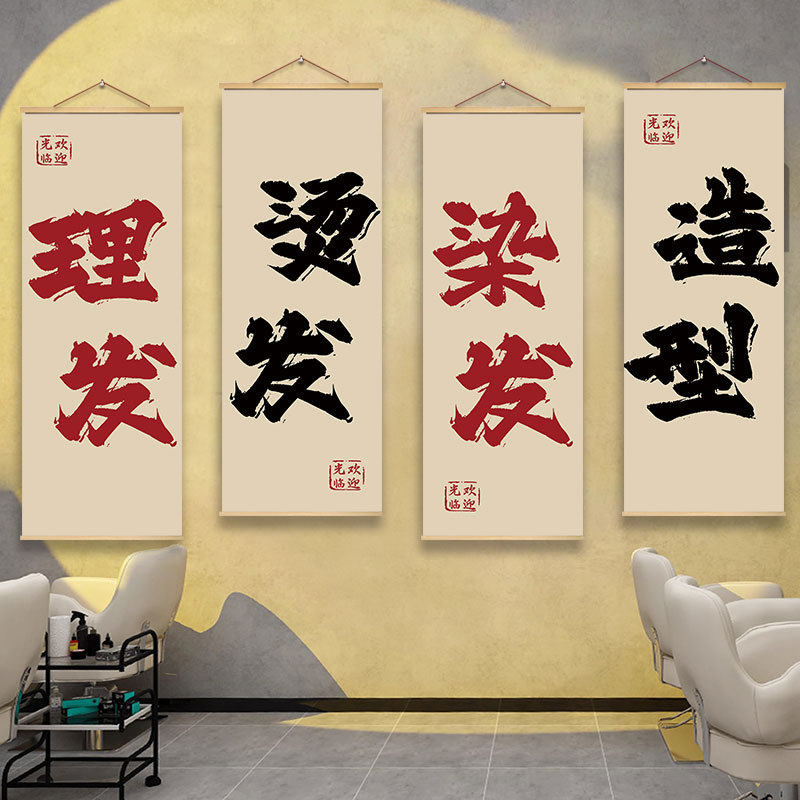 欢迎光临
理发
烫发
欢迎光临
染发
欢迎光临
欢迎光临
造型